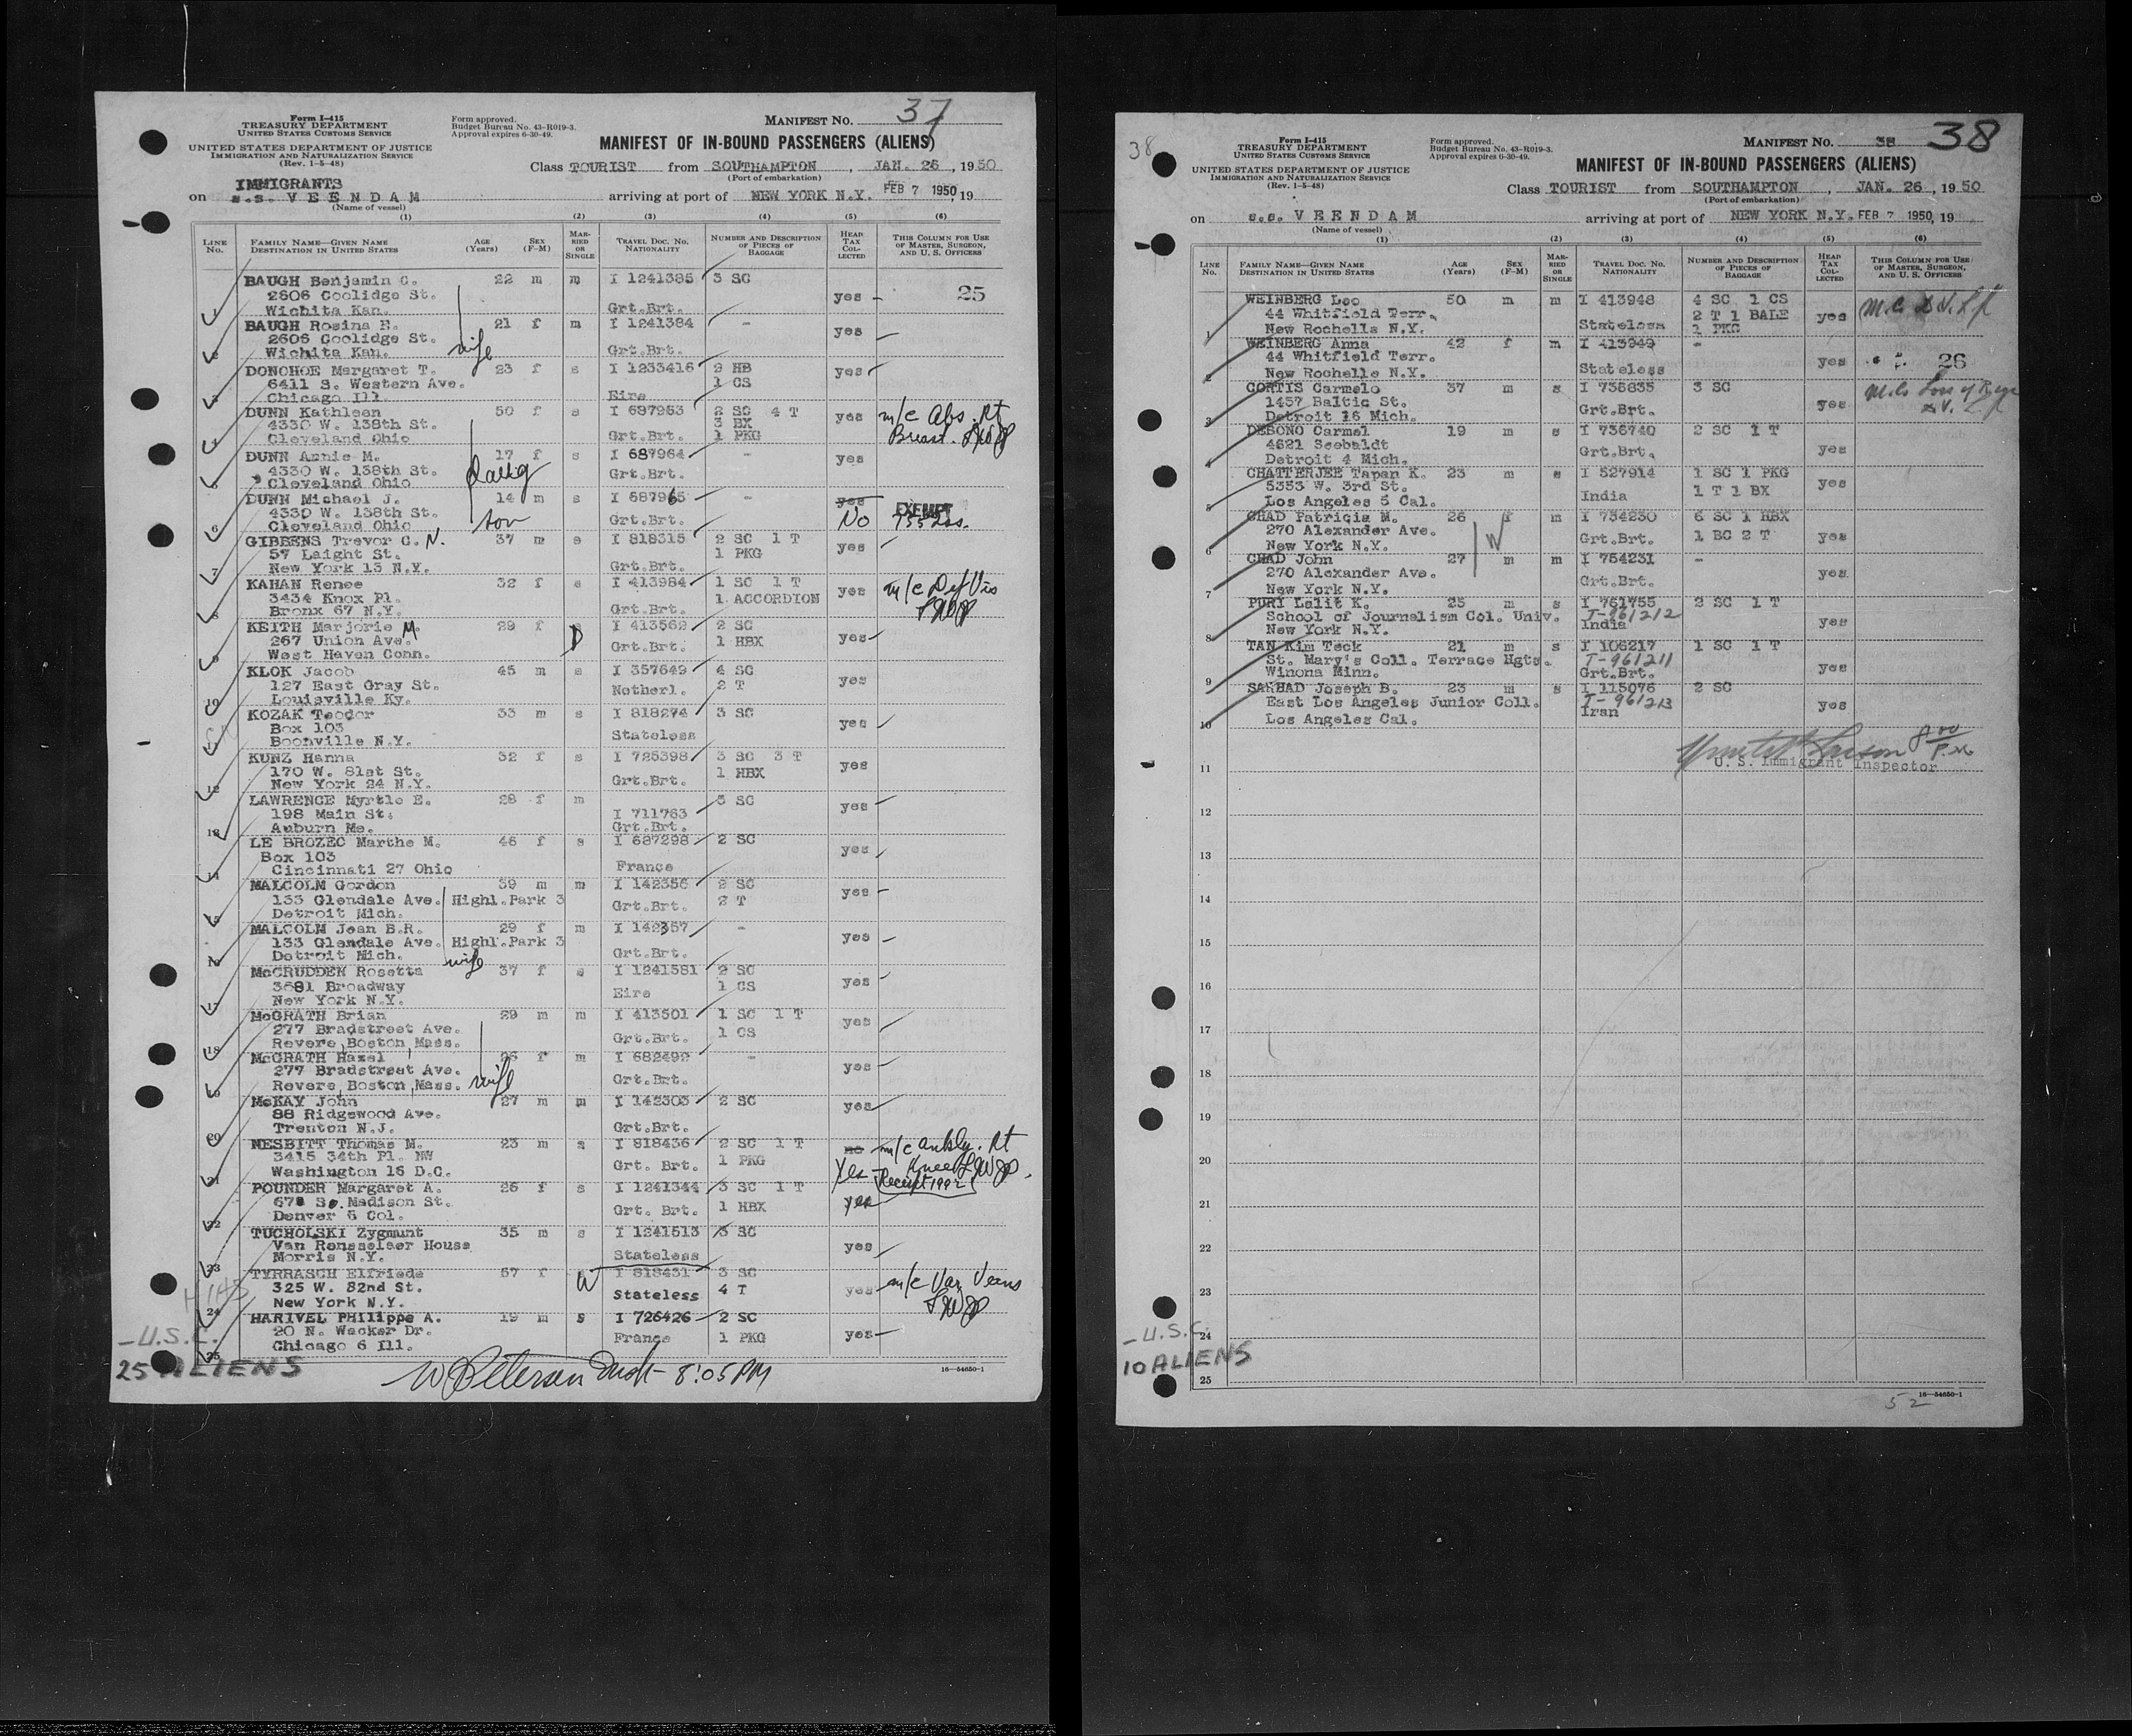 37
Form I-415
TREASURY DEPARTMENT
UNITED STATES CUSTOMS SERVICE
UNITED STATES DEPARTMENT OF JUSTICE
IMMIGRATION AND NATURALIZATION SERVICE
(Rev. 1-5-48)
Form approved.
Budget Bureau No. 43-R019-3.
Approval expires 6-30-49.
MANIFEST NO.
MANIFEST OF IN-BOUND PASSENGERS (ALIENS)
Class TOURIST from SOUTHAMPTON, JAN. 26, 1950
(Port of embarkation)
IMMIGRANTS
on s.s. VEENDAM arriving at port of NEW YORK N.Y. FEB 7 1950, 19
(Name of vessel)
(1) (2) (3) (4) (5) (6)
LINE No. FAMILY NAME—GIVEN NAME DESTINATION IN UNITED STATES AGE (Years) SEX (F-M) MARRIED OR SINGLE TRAVEL DOC. NO. NATIONALITY NUMBER AND DESCRIPTION OF PIECES OF BAGGAGE HEAD TAX COLLECTED THIS COLUMN FOR USE OF MASTER, SURGEON, AND U. S. OFFICERS
BAUGH Benjamin C. 22 m m I 1241385 3 SC
2606 Coolidge St. yes 25
1 Wichita Kan. Grt.Brt.
BAUGH Rosina E. 21 f m I 1241384 -
2606 Coolidge St. yes
2 Wichita Kan. wife Grt.Brt.
DONOHOE Margaret T. 23 f s I 1233416 2 HB yes
6411 S. Western Ave. 1 CS
3 Chicago Ill. Eire
DUNN Kathleen 50 f s I 687963 2 SC 4 T yes m/c Abs. Rt
4330 W. 138th St. 3 BX Breast.
4 Cleveland Ohio Grt.Brt. 1 PKG
DUNN Annie M. 17 f s I 687964 - yes
4330 W. 138th St. Grt.Brt.
5 Cleveland Ohio daug
DUNN Michael J. 14 m s I 687965 - yes EXEMPT
4330 W. 138th St. Grt.Brt. No
6 Cleveland Ohio son
GIBBENS Trevor C. N. 37 m s I 818315 2 SC 1 T yes
57 Laight St. 1 PKG
7 New York 13 N.Y. Grt.Brt.
KAHAN Renee 32 f s I 413984 1 SC 1 T yes m/c Def Vis
3434 Knox Pl. 1 ACCORDION
8 Bronx 67 N.Y. Grt.Brt.
KEITH Marjorie M. 29 f D I 413562 2 SC
267 Union Ave. Grt.Brt. 1 HBX yes
9 West Haven Conn.
KLOK Jacob 45 m s I 357649 4 SC
127 East Gray St. Netherl. 2 T yes
10 Louisville Ky.
KOZAK Teodor 33 m s I 818274 3 SC
Box 103 Stateless yes
11 Boonville N.Y.
KUNZ Hanna 32 f s I 725398 3 SC 3 T
170 W. 81st St. Grt.Brt. 1 HBX yes
12 New York 24 N.Y.
LAWRENCE Myrtle E. 28 f m 3 SC
198 Main St. I 711763 yes
13 Auburn Me. Grt.Brt.
LE BROZEC Marthe M. 46 f s I 687298 2 SC
Box 103 yes
14 Cincinnati 27 Ohio France
MALCOLM Gordon 39 m m I 142356 2 SC
133 Glendale Ave. Highl.Park 3 Grt.Brt. 2 T yes
15 Detroit Mich.
MALCOLM Jean B.R. 29 f m I 142357 -
133 Glendale Ave. Highl.Park 3 yes
16 Detroit Mich. wife Grt.Brt.
McCRUDDEN Rosetta 37 f s I 1241581 2 SC
3681 Broadway Eire 1 CS yes
17 New York N.Y.
McGRATH Brian 29 m m I 413501 1 SC 1 T
277 Bradstreet Ave. Grt.Brt. 1 CS yes
18 Revere,Boston,Mass.
McGRATH Hazel 26 f m I 682492 -
277 Bradstreet Ave. Grt.Brt. yes
19 Revere,Boston,Mass. wife
McKAY John 27 m m I 142303 2 SC yes
88 Ridgewood Ave.
20 Trenton N.J. Grt.Brt.
NESBITT Thomas M. 23 m s I 818436 2 SC 1 T no m/c Ankly. Rt
3415 34th Pl. NW Grt. Brt. 1 PKG Yes Knee
21 Washington 16 D.C. Receipt 1992
POUNDER Margaret A. 26 f s I 1241344 3 SC 1 T yes
678 So. Madison St. Grt. Brt. 1 HBX
22 Denver 6 Col.
TUCHOLSKI Zygmunt 35 m s I 1241513 3 SC
Van Rensselaer House yes
23 Morris N.Y. Stateless
TYRRASCH Elfriede 67 f W I 818431 3 SC
325 W. 82nd St. Stateless 4 T yes m/c Var. Veins
24 New York N.Y. HIAS
HARIVEL Philippe A. 19 m s I 726426 2 SC
20 N. Wacker Dr. France 1 PKG yes
25 Chicago 6 Ill.
- U.S.C.
25 ALIENS
W Petersen 8:05 PM
16—54650-1
38
Form I-415
TREASURY DEPARTMENT
UNITED STATES CUSTOMS SERVICE
UNITED STATES DEPARTMENT OF JUSTICE
IMMIGRATION AND NATURALIZATION SERVICE
(Rev. 1-5-48)
Form approved.
Budget Bureau No. 43-R019-3.
Approval expires 6-30-49.
MANIFEST NO. 38 38
MANIFEST OF IN-BOUND PASSENGERS (ALIENS)
Class TOURIST from SOUTHAMPTON, JAN. 26, 1950
(Port of embarkation)
on s.s. VEENDAM arriving at port of NEW YORK N.Y. FEB 7 1950, 19
(Name of vessel)
(1) (2) (3) (4) (5) (6)
LINE No. FAMILY NAME—GIVEN NAME DESTINATION IN UNITED STATES AGE (Years) SEX (F-M) MARRIED OR SINGLE TRAVEL DOC. NO. NATIONALITY NUMBER AND DESCRIPTION OF PIECES OF BAGGAGE HEAD TAX COLLECTED THIS COLUMN FOR USE OF MASTER, SURGEON, AND U. S. OFFICERS
WEINBERG Leo 50 m m I 413948 4 SC 1 CS
44 Whitfield Terr. 2 T 1 BALE yes
1 New Rochelle N.Y. Stateless 1 PKG
WEINBERG Anna 42 f m I 413949 -
44 Whitfield Terr. yes 26
2 New Rochelle N.Y. Stateless
CORTIS Carmelo 37 m s I 736835 3 SC
1457 Baltic St. Grt.Brt. yes
3 Detroit 16 Mich.
DEBONO Carmel 19 m s I 736740 2 SC 1 T
4621 Seebaldt Grt.Brt. yes
4 Detroit 4 Mich.
CHATTERJEE Tapan K. 23 m s I 527914 1 SC 1 PKG
5353 W. 3rd St. India 1 T 1 BX yes
5 Los Angeles 5 Cal.
CHAD Patricia M. 26 f m I 734230 6 SC 1 HBX
270 Alexander Ave. W Grt.Brt. 1 BC 2 T yes
6 New York N.Y.
CHAD John 27 m m I 754231 -
270 Alexander Ave. Grt.Brt. yes
7 New York N.Y.
PURI Lalit K. 25 m s I 761755 2 SC 1 T
School of Journalism Col. Univ. T-961212 yes
8 New York N.Y. India
TAN Kim Teck 21 m s I 106217 1 SC 1 T
St. Mary's Coll. Terrace Hgts. T-961211 yes
9 Winona Minn. Grt.Brt.
SARHAD Joseph B. 23 m s I 115076 2 SC
East Los Angeles Junior Coll. T-961213 yes
10 Los Angeles Cal. Iran
8:00 P.M.
11 U. S. Immigrant Inspector
12
13
14
15
16
17
18
19
20
21
22
23
24
25
- U.S.C.
10 ALIENS
16—54650-1
52